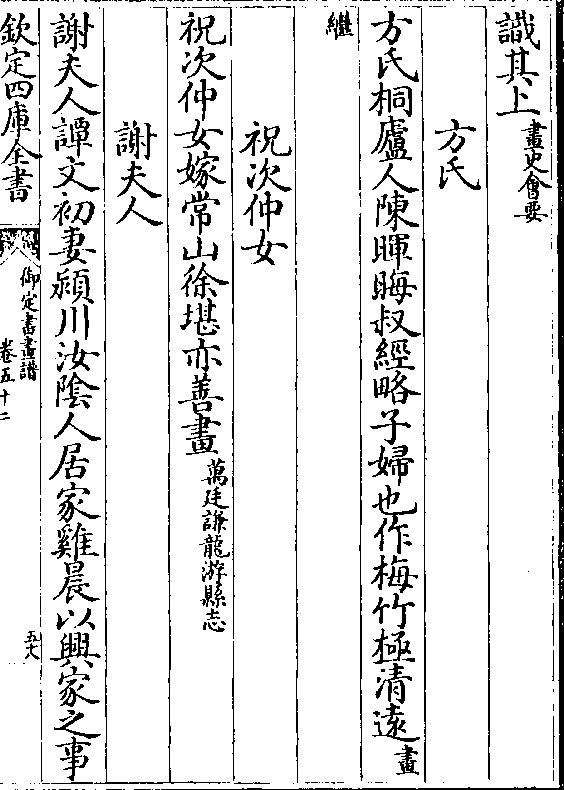 識其上畫史會要
方氏
方氏桐廬人陳暉晦叔經略子婦也作梅竹極清遠畫
繼
祝次仲女
祝次仲女嫁常山徐堪亦善畫萬廷謙龍游縣志
謝夫人
謝夫人譚文初妻潁川汝陰人居家雞晨以興家之事
欽定四庫全書
御定書畫譜
卷五十二
五六